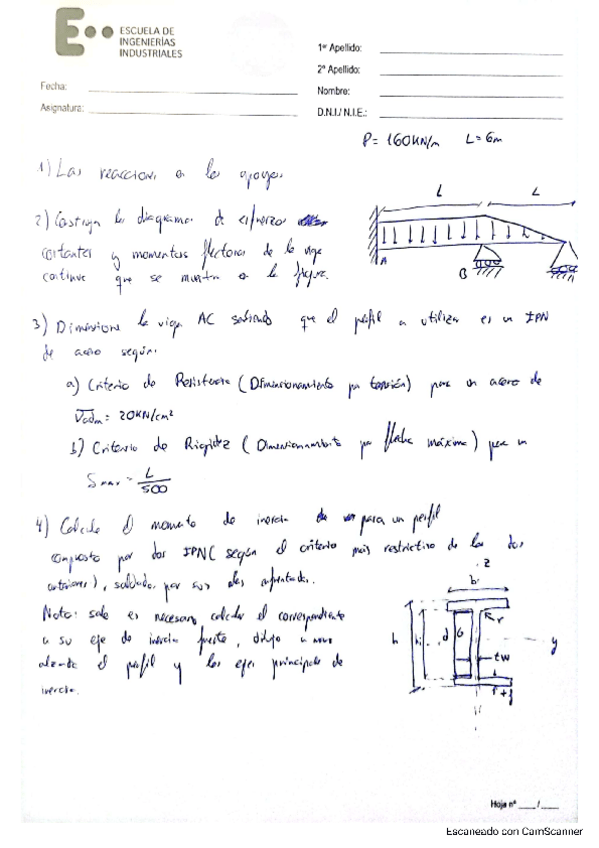 ESCUELA DE
INGENIERÍAS
INDUSTRIALES
1er Apellido:
2º Apellido:
Fecha:
Nombre:
Asignatura:
D.N.I./ N.I.E.:
P= 160KN/m L= 6m
1) Las reacciones en los apoyos
L L
2) los diagramas de esfuerzos
cortantes y momentos flectores de la viga
continua que se muestra en la figura.
A
B
3) Dimensione la viga AC sabiendo que el perfil a utilizar es un IPN
de acero según:
a) Criterio de Resistencia (Dimensionamiento por tensión) para un acero de
σadm = 20KN/cm²
b) Criterio de Rigidez (Dimensionamiento por flecha máxima) para un
δmax = L/500
4) Calcule el momento de inercia para un perfil
compuesto por dos IPN (según el criterio más restrictivo de los dos
anteriores), soldados por sus alas enfrentadas.
Nota: solo es necesario calcular el correspondiente
a su eje de inercia fuerte, dibuje a mano
alzada el perfil y los ejes principales de
inercia.
z
b
r
h hi d G
y
tw
Hoja nº ___/___
Escaneado con CamScanner